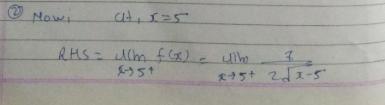 ② Now, at, x=5
RHS = lim f(x) = lim 7
x→5+ x→5+ 2√x-5